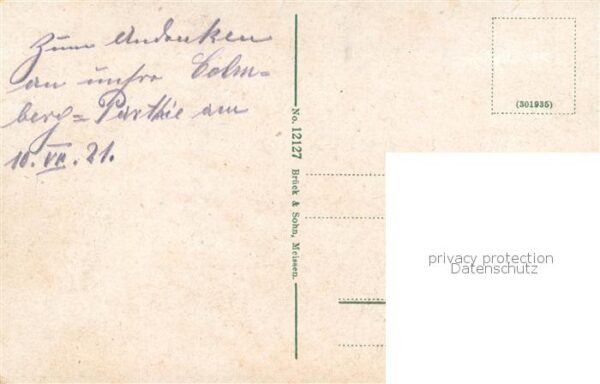 Zum Andenken
an unsre Colm-
berg=Parthie am
10. VII. 21.
No. 12127 Brück & Sohn, Meissen.
(301935)
privacy protection
Datenschutz